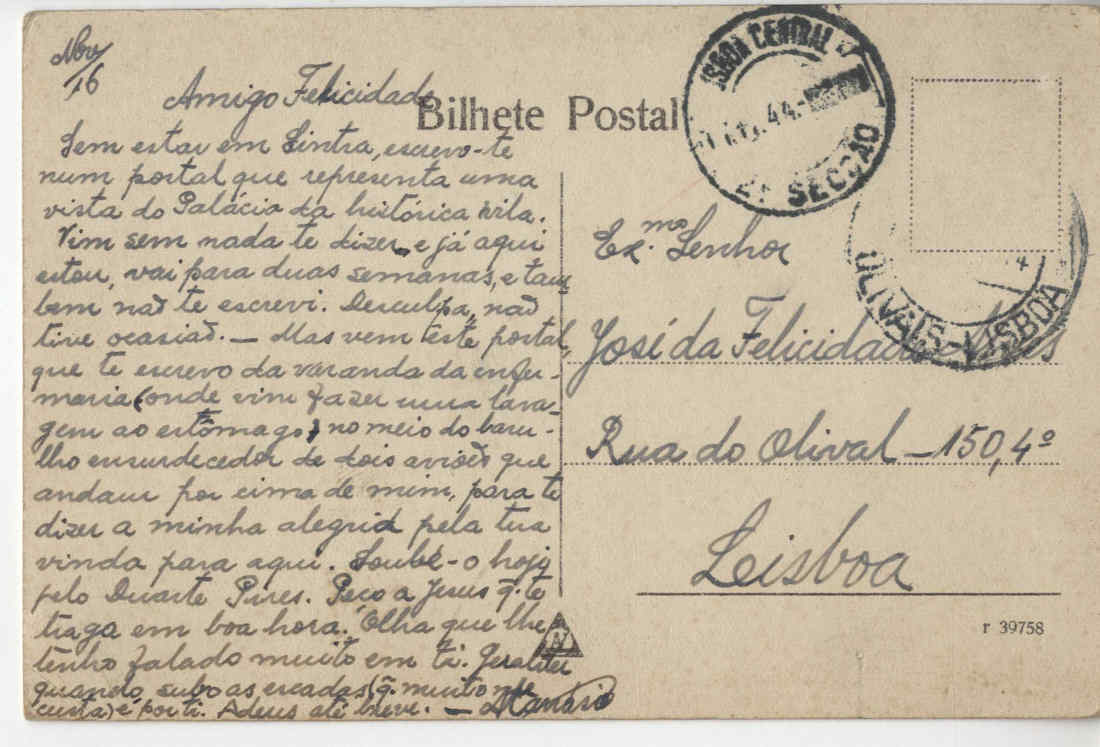 Nov/16
Amigo Felicidade
Bilhete Postal
Sem estar em Sintra, escrevo-te
num postal que representa uma
vista do Palácio da histórica vila.
Vim sem nada te dizer, e já aqui
estou, vai para duas semanas, e tam
bem não te escrevi. Desculpa, não
tive ocasião. — Mas vem êste postal,
que te escrevo da varanda da enfer-
maria (onde vim fazer uma lava-
gem ao estômago) no meio do baru-
lho ensurdecedor de dois aviões que
andam por cima de mim, para te
dizer a minha alegria pela tua
vinda para aqui. Soube-o hoje
pelo Duarte Pires. Peço a Jesus q. te
traga em boa hora. Olha que lhe
tenho falado muito em ti.
quando subo as escadas (q. muito me
custa) é por ti. Adeus até breve. —
LISBOA CENTRAL
44
2ª SECÇÃO
OLIVAIS-LISBOA
Ex.mo Senhor
José da Felicidade
Rua do Olival — 150, 4º
Lisboa
r 39758